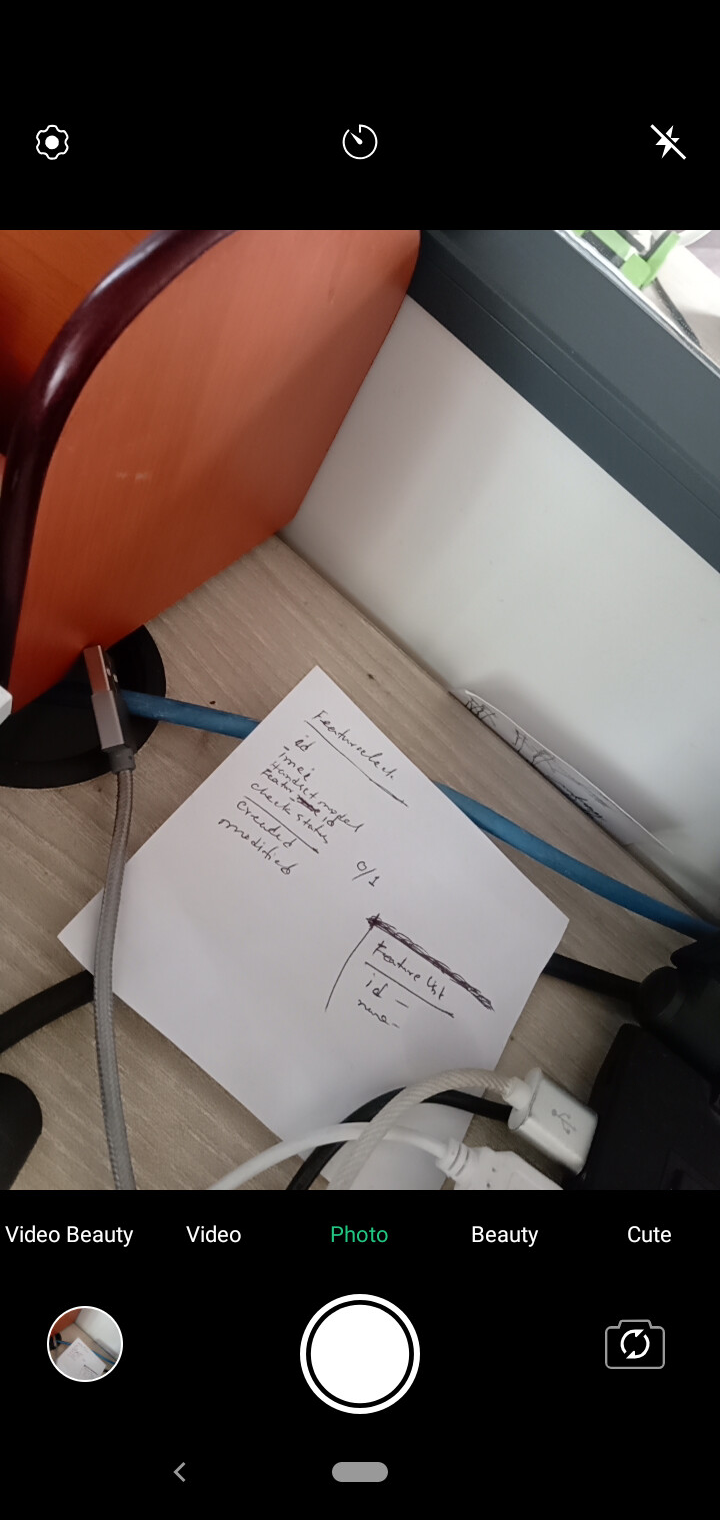 Featurecheck
id
imei
Handset model
Feature id
check status
Created
modified
0/1
Feature list
id -
Video Beauty
Video
Photo
Beauty
Cute